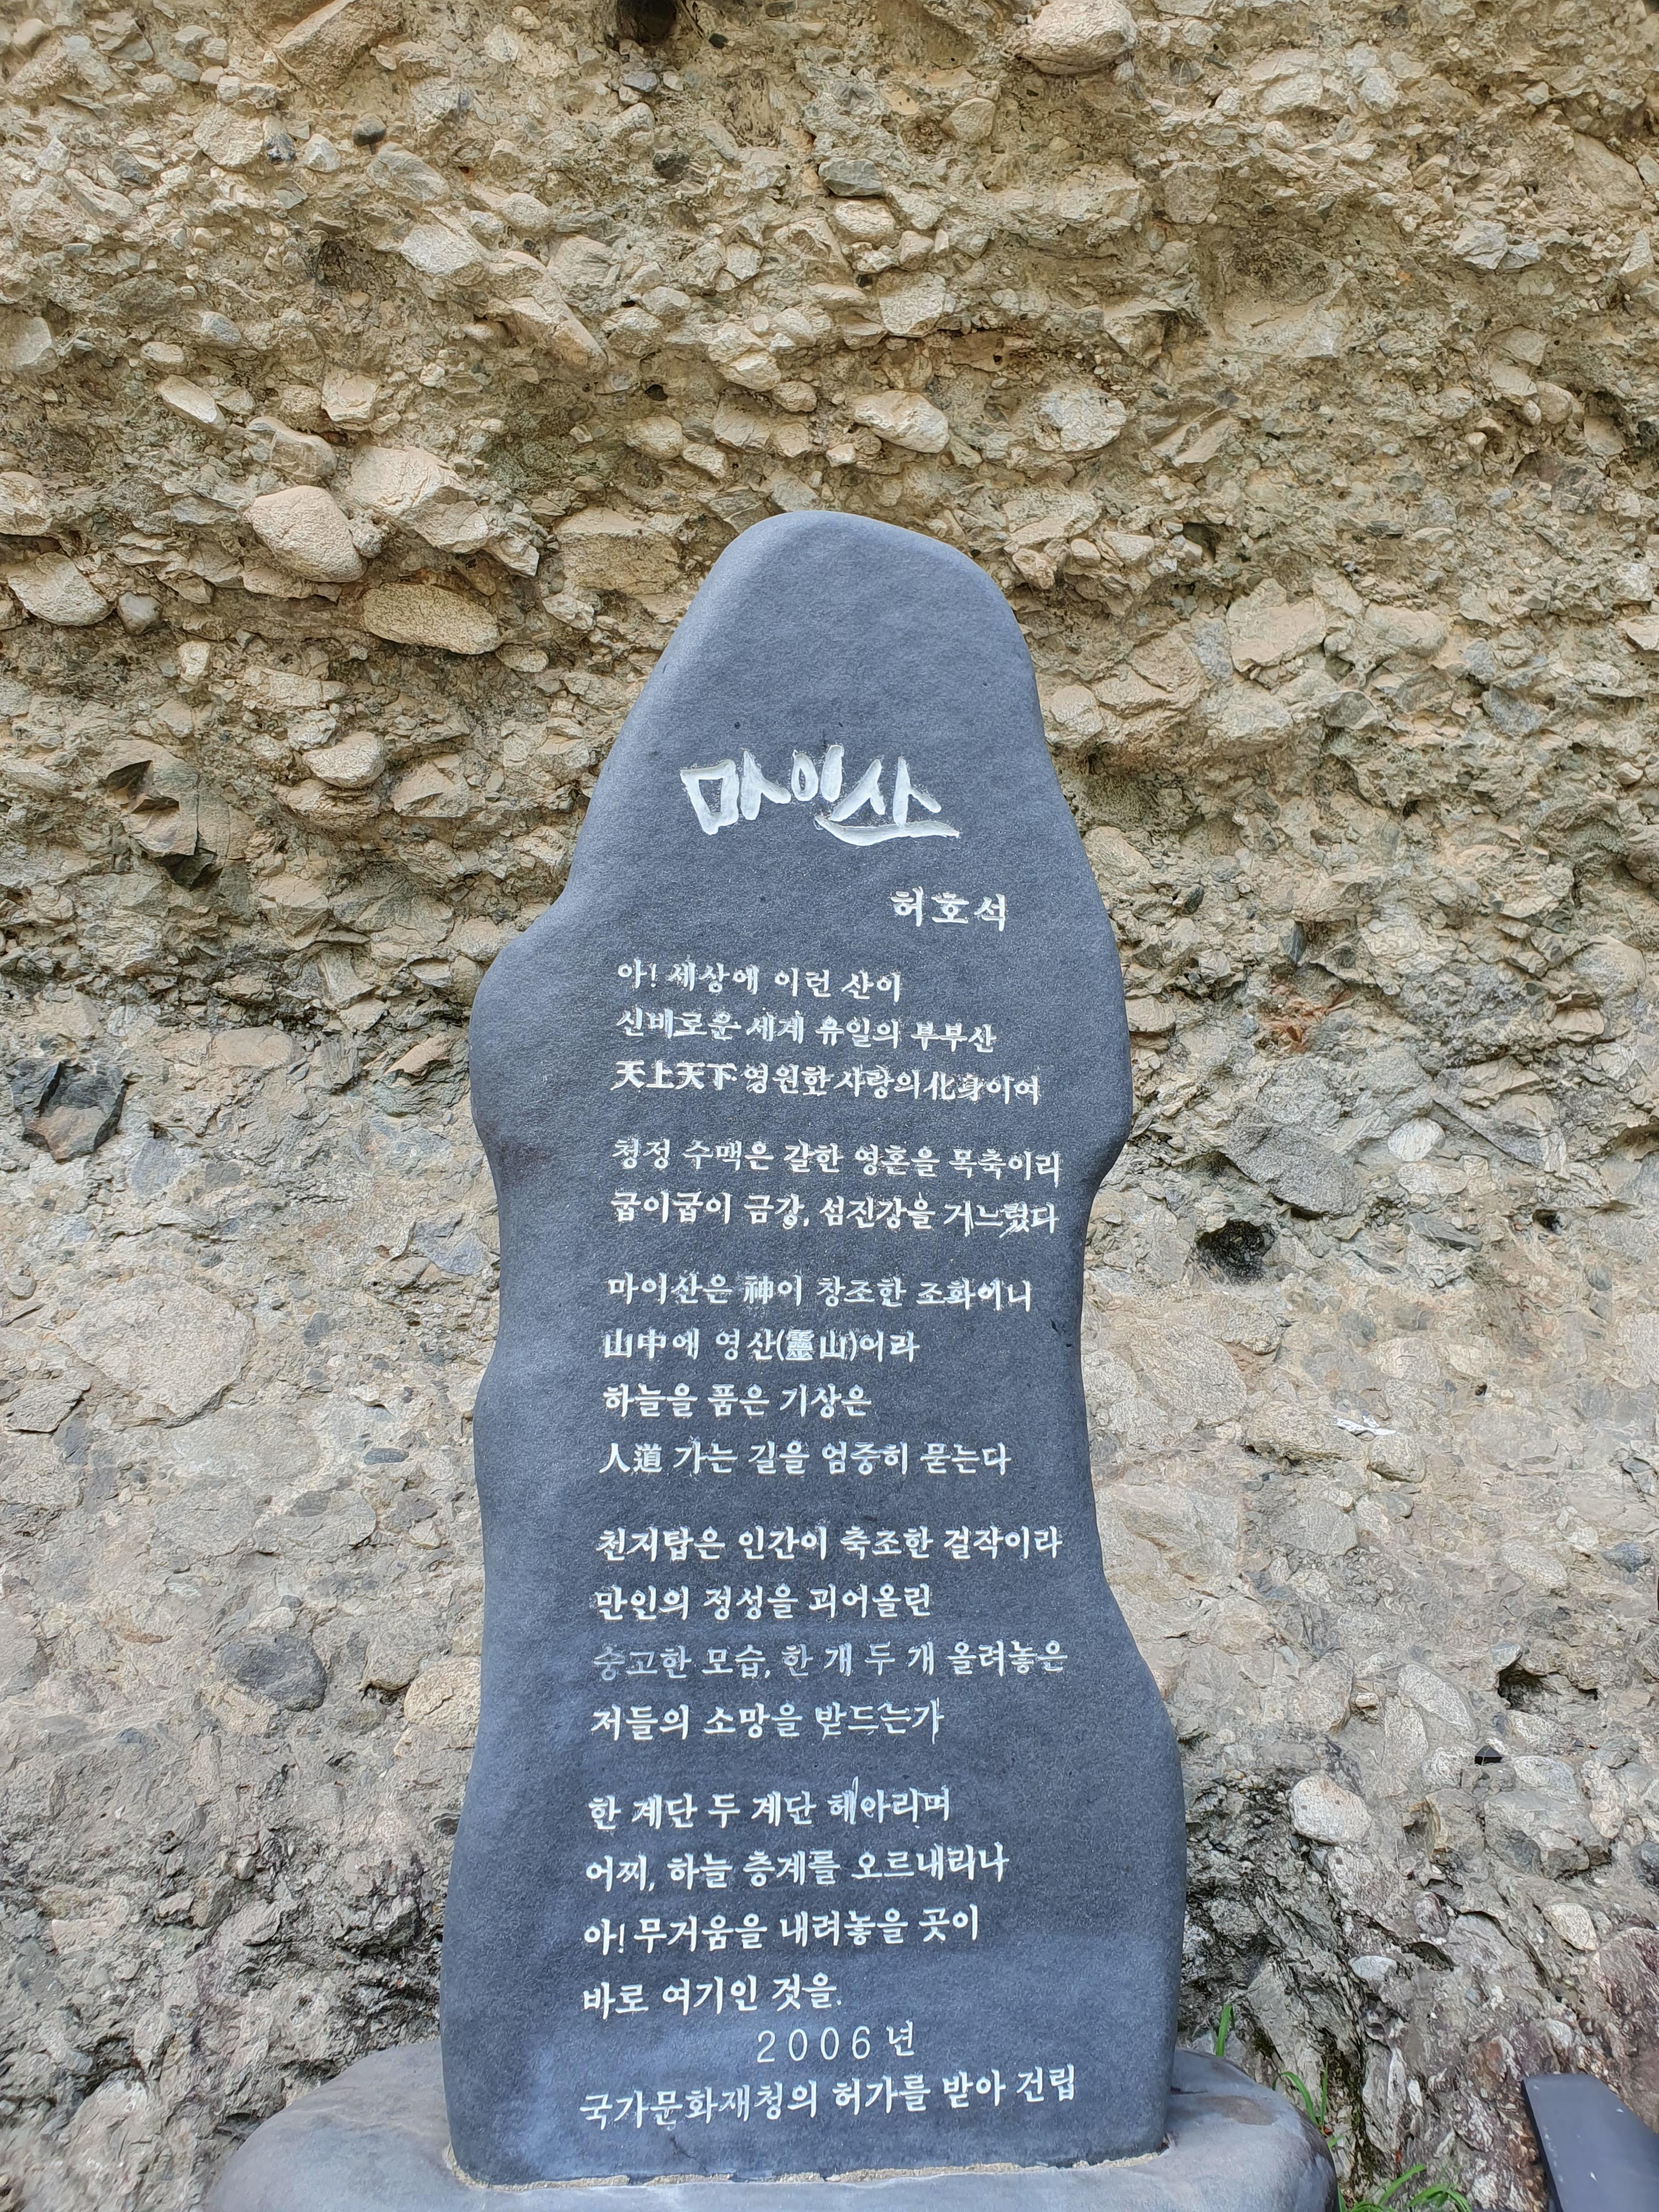 마이산
허호석
아! 세상에 이런 산이
신비로운 세계 유일의 부부산
天上天下 영원한 사랑의 化身이여
청정 수맥은 갈한 영혼을 목축이리
굽이굽이 금강, 섬진강을 거느렸다
마이산은 神이 창조한 조화이니
山中에 영산(靈山)이라
하늘을 품은 기상은
人道 가는 길을 엄중히 묻는다
천지탑은 인간이 축조한 걸작이라
만인의 정성을 괴어올린
숭고한 모습, 한 개 두 개 올려놓은
저들의 소망을 받드는가
한 계단 두 계단 헤아리며
어찌, 하늘 층계를 오르내리나
아! 무거움을 내려놓을 곳이
바로 여기인 것을.
2006년
국가문화재청의 허가를 받아 건립